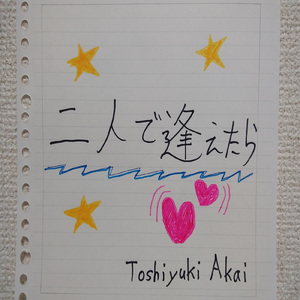 二人で逢えたら
Toshiyuki Akai